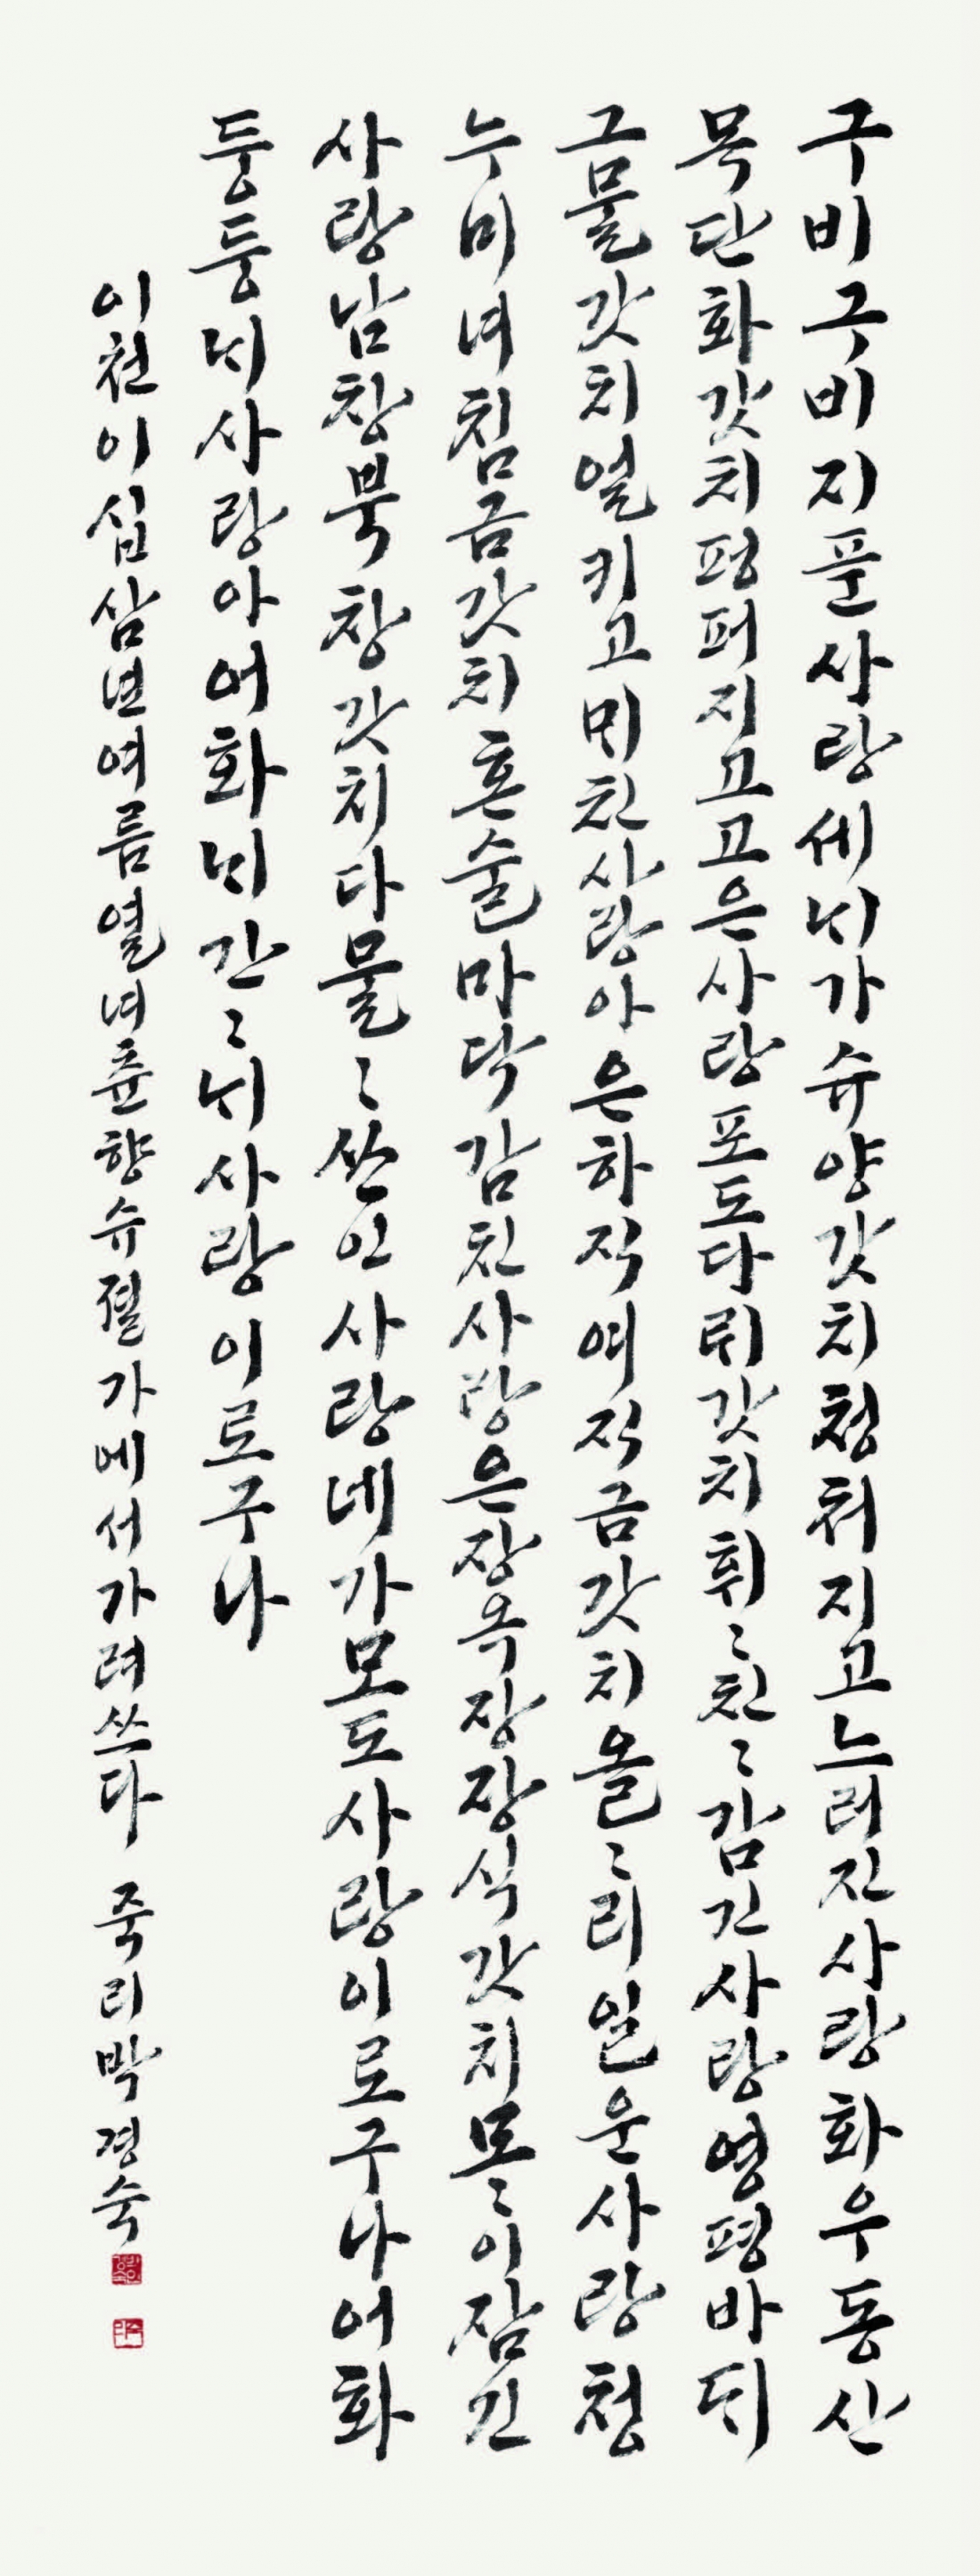 구비구비지푼사랑세ᄂᆡ가슈양갓치청처지고느러진사랑화우동산
목단화갓치펑퍼지고고은사랑포도다ᄅᆡ갓치휘〻친〻감긴사랑영평바ᄃᆡ
그물갓치얼키고ᄆᆡ친사랑아은하직여직금갓치올〻리일운사랑청
누비녀침금갓치혼술마닥감친사랑은장옥장장식갓치모〻이잠긴
사랑남창북창갓치다물〻쓴인사랑네가모도사랑이로구나어화
둥둥ᄂᆡ사랑아어화ᄂᆡ간〻ᄂᆡ사랑이로구나
이천이십삼년여름열녀츈향슈졀가에서가려쓰다 죽리박경숙